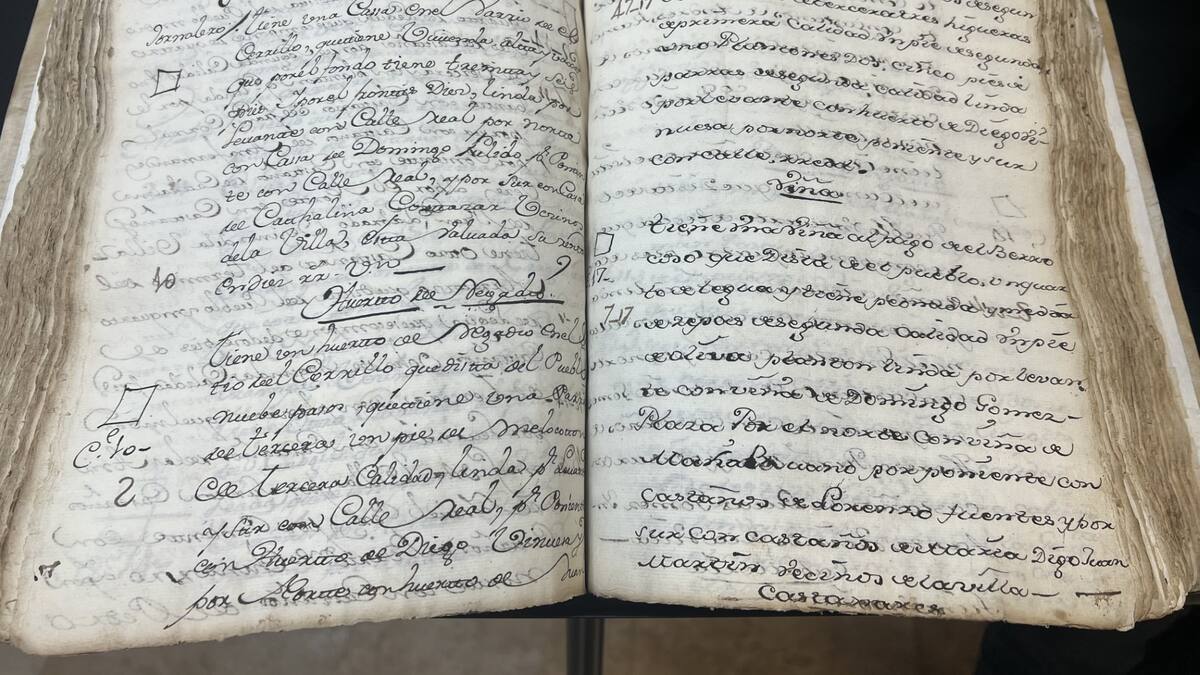 Jornalero / tiene una Casa en el Barrio de el
Cerrillo, que tiene Vivienda alta, y vaxa
que por el fondo tiene treinta y seis
pies y por el frontis Diez, linda por
Levante con Calle Real por norte
con Casa de Domingo Pulido, pr. Ponien
te con Calle Real, y por Sur con Casa
de Cathalina vecinos
dela Villa, esta valuada su renta
40 en diez rr. Vn
Huerto de Regadio
tiene un huerto de Regadio en el Si
tio de el Cerrillo que dista del Pueblo
nuebe pasos, que tiene una
Co. 40- de tercera un pie de Melocoton
2 de tercera Calidad, linda pr. Levante
y Sur con Calle Real, y pr. Poniente
con Huerto de Diego Vinuesa y
por Norte con huerto de Juan
4717
de tercera tres higueras
de primera Calidad un pie de segunda
uno Plantones Dos, cinco pies de
parras de segunda calidad linda
por levante con huerto de Diego Vi
nuesa por norte, poniente y sur
con calle. rreal
Viña
tiene una viña al pago de el Berro
cino que Dista de el pueblo, un quar
17 to de legua y tiene, peonada y media
717 de zepas de segunda Calidad un pie
de oliva planton linda por levan
te con viña de Domingo Gomez-
Plaza Por el norte con viña de
por poniente con
castaños de Lorenzo fuentes y por
sur con castaños de Maria Digo Juan
Martin vecinos de la villa-
Castañares